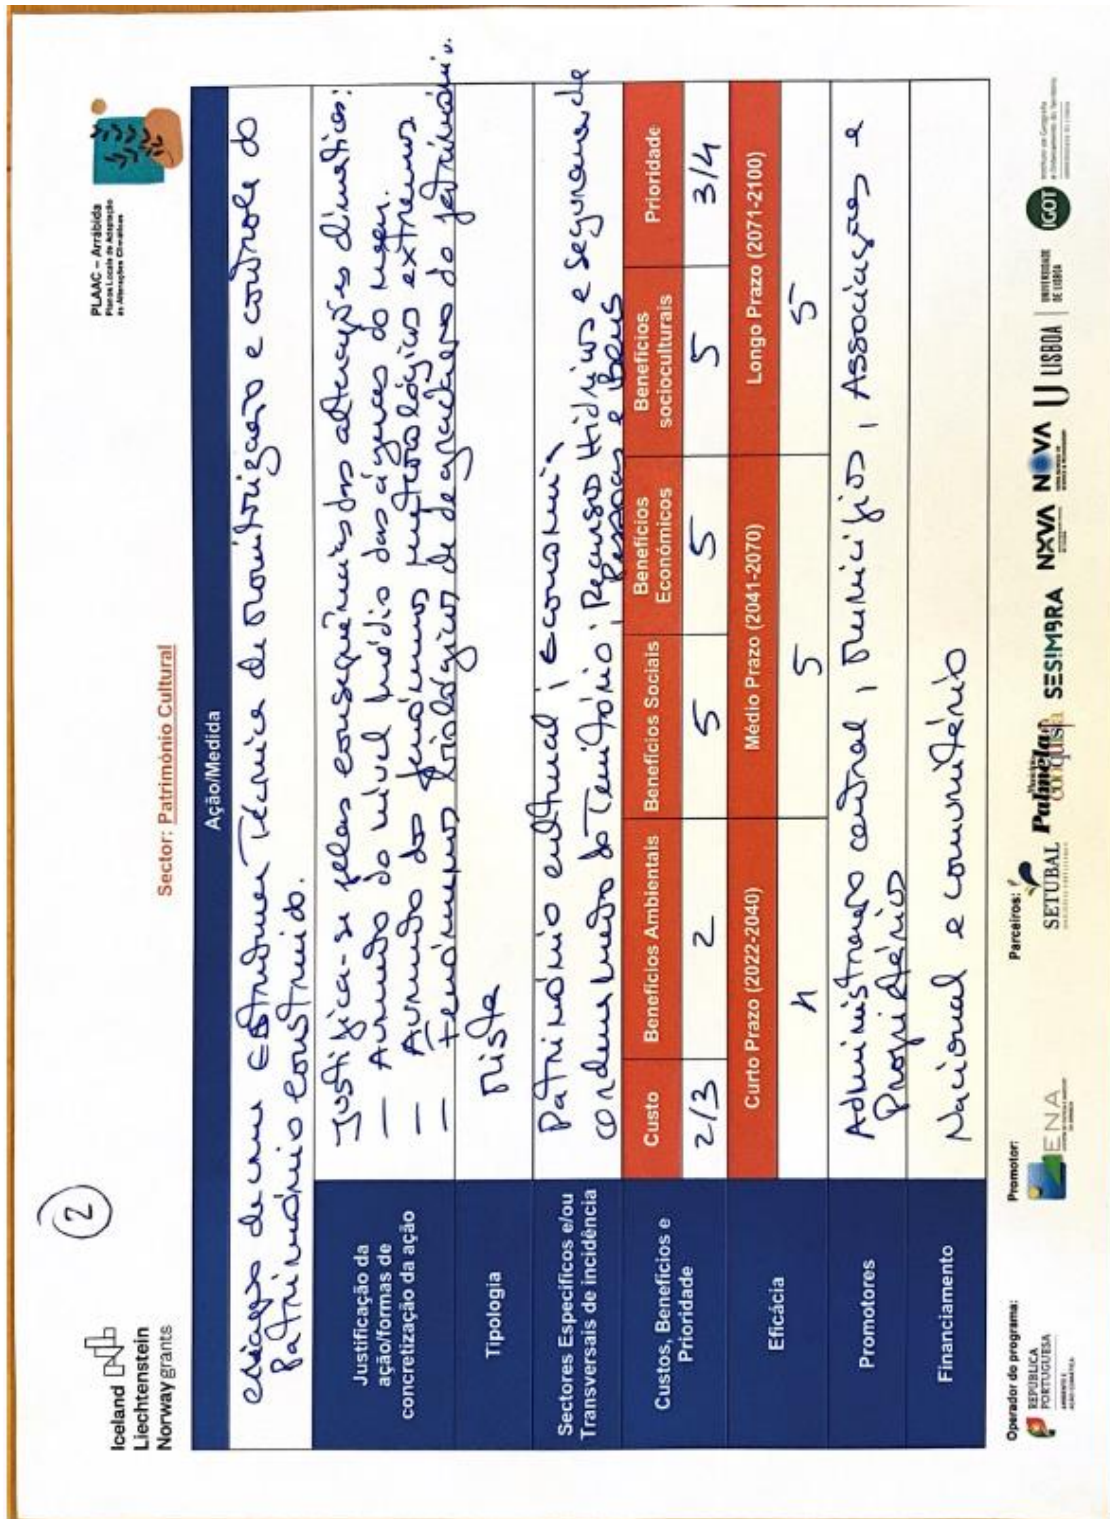 Iceland
Liechtenstein
Norway grants
2
PLAAC – Arrábida
Planos Locais de Adaptação
às Alterações Climáticas
Sector: Património Cultural
Ação/Medida
criação de uma Estrutura Técnica de Monitorização e controle do
Património construido.
Justificação da
ação/formas de
concretização da ação
Justifica-se pelas consequências das alterações climáticas:
— Aumento do nível médio das águas do mar.
— Aumento dos fenómenos meteorológicos extremos
— Fenómenos biológicos de degradação do património.
Tipologia
Mista
Sectores Específicos e/ou
Transversais de incidência
Património cultural; Economia,
ordenamento do Território; Recursos Hídricos e segurança de
Pessoas e bens
Custos, Benefícios e
Prioridade
Custo
Benefícios Ambientais
Benefícios Sociais
Benefícios
Económicos
Benefícios
socioculturais
Prioridade
2/3
2
5
5
5
3/4
Eficácia
Curto Prazo (2022-2040)
Médio Prazo (2041-2070)
Longo Prazo (2071-2100)
4
5
5
Promotores
Administração central, Municípios, Associações e
Proprietários
Financiamento
Nacional e comunitário
Operador do programa:
REPÚBLICA
PORTUGUESA
AMBIENTE E
AÇÃO CLIMÁTICA
Promotor:
ENA
Parceiros:
SETUBAL
Palmela
conquista
SESIMBRA
NOVA
NOVA
U LISBOA
UNIVERSIDADE
DE LISBOA
IGOT
Instituto de Geografia
e Ordenamento do Território